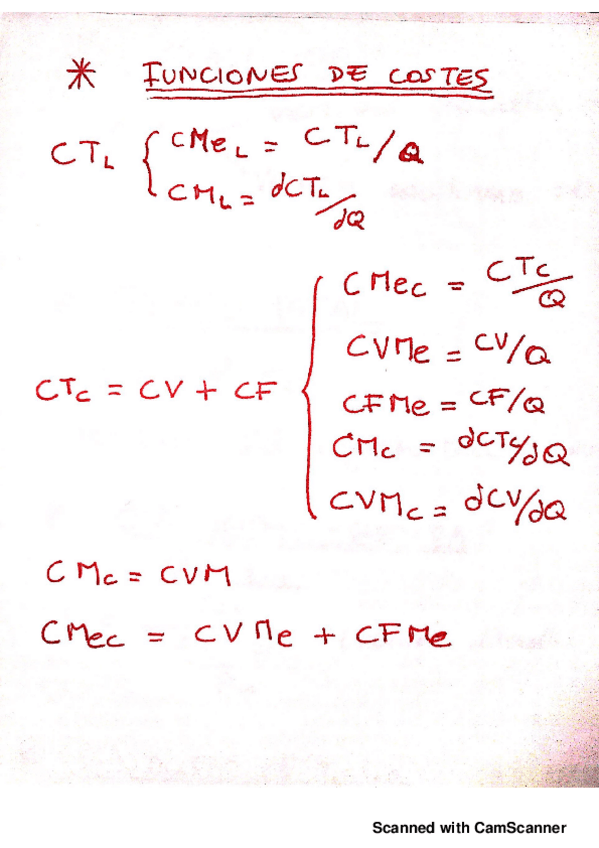 * FUNCIONES DE COSTES
CT_L { CMe_L = CT_L/Q
CM_L = dCT_L/dQ
CMec = CTc/Q
CVMe = CV/Q
CTc = CV + CF {
CFMe = CF/Q
CMc = dCTc/dQ
CVMc = dCV/dQ
CMc = CVM
CMec = CVMe + CFMe
Scanned with CamScanner